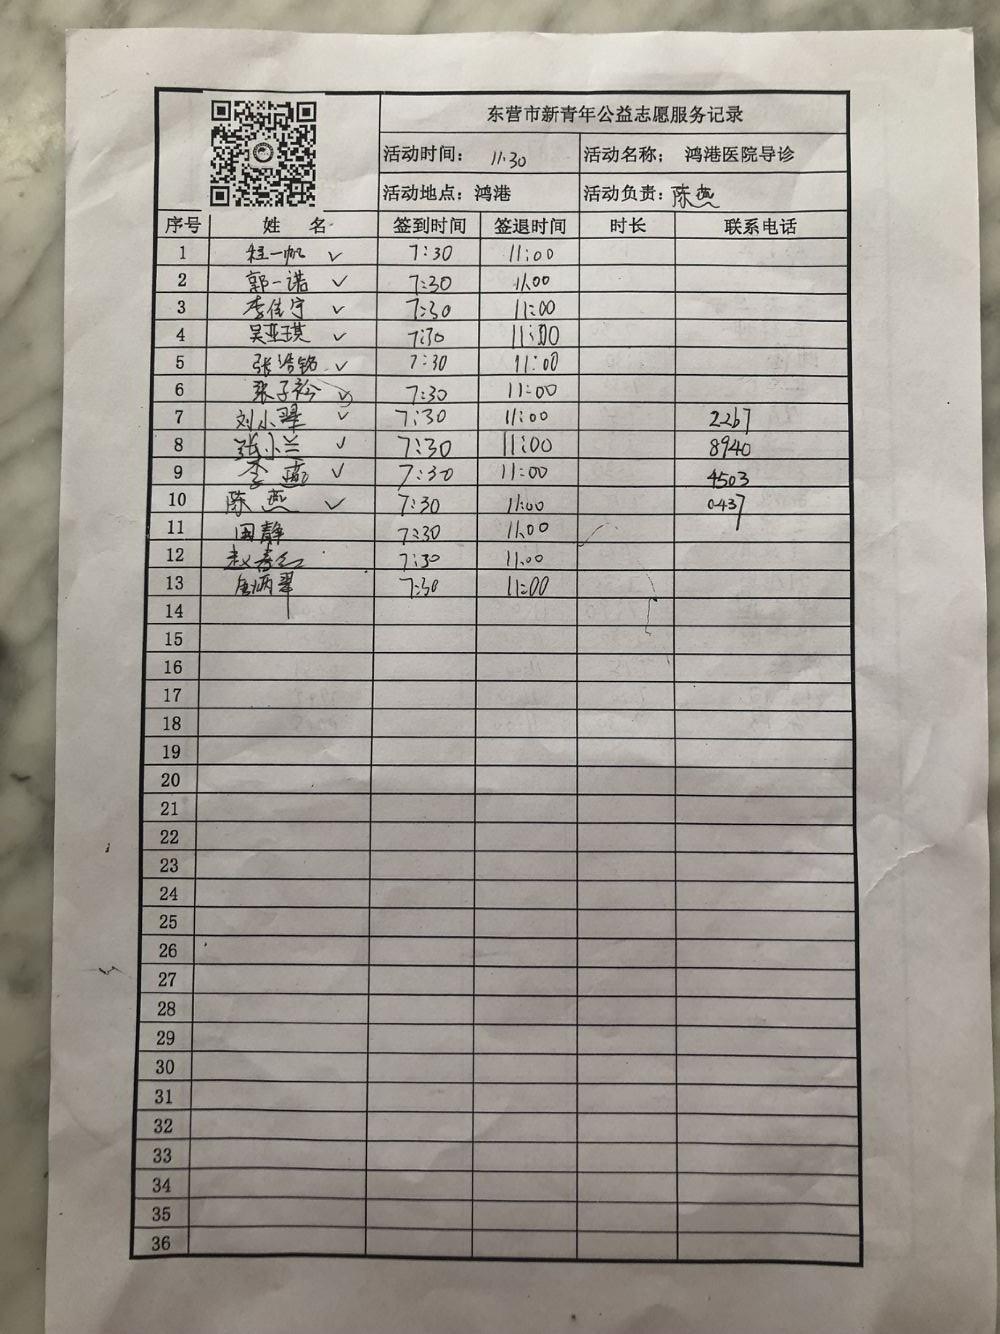 东营市新青年公益志愿服务记录
活动时间: 11.30 活动名称; 鸿港医院导诊
活动地点: 鸿港 活动负责: 陈燕
序号 姓 名 签到时间 签退时间 时长 联系电话
1 程一帆 ✓ 7:30 11:00
2 郭一诺 ✓ 7:30 11.00
3 李佳宇 ✓ 7:30 11:00
4 吴亚琪 ✓ 7:30 11:00
5 张浩铭 ✓ 7:30 11:00
6 张子衿 ✓ 7:30 11:00
7 刘小翠 ✓ 7:30 11:00 2267
8 张小兰 ✓ 7:30 11:00 8940
9 李 ✓ 7:30 11:00 4503
10 陈燕 ✓ 7:30 11:00 0437
11 田静 7:30 11.00
12 赵春红 7:30 11.00
13 翠 7:30 11:00
14
15
16
17
18
19
20
21
22
23
24
25
26
27
28
29
30
31
32
33
34
35
36